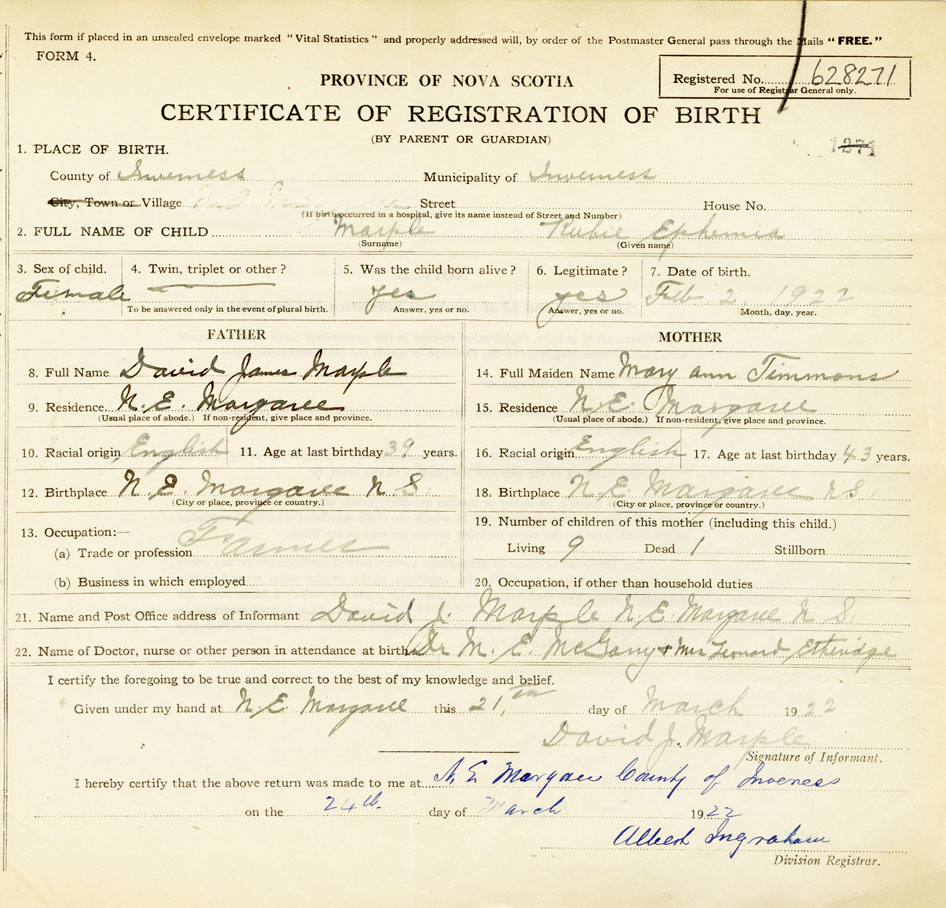 This form if placed in an unsealed envelope marked "Vital Statistics" and properly addressed will, by order of the Postmaster General pass through the Mails "FREE."
FORM 4.
Registered No. 628271
For use of Registrar General only.
PROVINCE OF NOVA SCOTIA
CERTIFICATE OF REGISTRATION OF BIRTH
(BY PARENT OR GUARDIAN)
1. PLACE OF BIRTH.
County of Inverness Municipality of Inverness
City, Town or Village Street House No.
(If birth occurred in a hospital, give its name instead of Street and Number)
2. FULL NAME OF CHILD Marple Rubie Ephemia
(Surname) (Given name)
3. Sex of child. 4. Twin, triplet or other? 5. Was the child born alive? 6. Legitimate? 7. Date of birth.
Female yes yes Feb 2, 1922
To be answered only in the event of plural birth. Answer, yes or no. Answer, yes or no. Month, day, year.
FATHER MOTHER
8. Full Name David James Marple 14. Full Maiden Name Mary ann Timmons
9. Residence N.E. Margaree 15. Residence N.E. Margaree
(Usual place of abode.) If non-resident, give place and province. (Usual place of abode.) If non-resident, give place and province.
10. Racial origin English 11. Age at last birthday 39 years. 16. Racial origin English 17. Age at last birthday 43 years.
12. Birthplace N.E. Margaree N S 18. Birthplace N.E Margaree N S
(City or place, province or country.) (City or place, province or country.)
13. Occupation:— 19. Number of children of this mother (including this child.)
(a) Trade or profession Farmer Living 9 Dead 1 Stillborn
(b) Business in which employed 20. Occupation, if other than household duties
21. Name and Post Office address of Informant David J. Marple N.E. Margaree N S.
22. Name of Doctor, nurse or other person in attendance at birth Dr M. E. McGarry + Mrs Leonard Etheridge
I certify the foregoing to be true and correct to the best of my knowledge and belief.
Given under my hand at N.E. Margaree this 21, day of March 1922
David J. Marple
Signature of Informant.
I hereby certify that the above return was made to me at N. E Margaree County of Inverness
on the 24th day of March 1922
Albert Ingraham
Division Registrar.